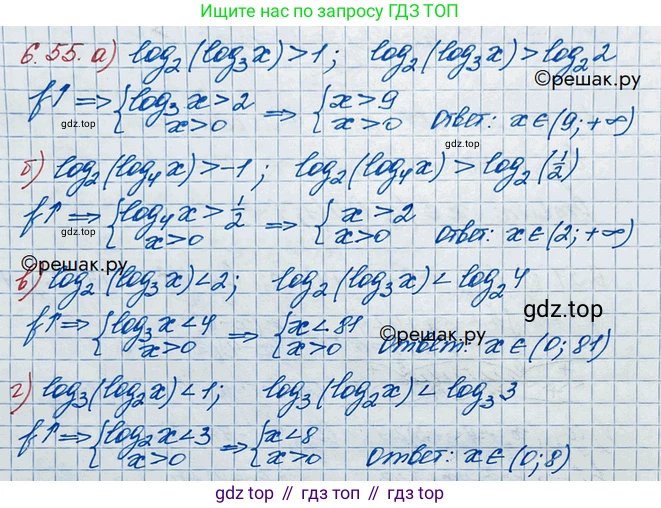 Ищите нас по запросу ГДЗ ТОП
6.55. а) log₂(log₃x)>1; log₂(log₃x)>log₂2
©решак.ру
f↑ ⇒ { log₃x>2 ⇒ { x>9
x>0 x>0 Ответ: x∈(9;+∞)
gdz.top
б) log₂(log₄x)>-1; log₂(log₄x)>log₂(1/2)
gdz.top
f↑ ⇒ { log₄x>1/2 ⇒ { x>2
x>0 x>0 Ответ: x∈(2;+∞)
gdz.top
©решак.ру
в) log₂(log₃x)<2; log₂(log₃x)<log₂4
gdz.top
f↑ ⇒ { log₃x<4 ⇒ { x<81
x>0 x>0 Ответ: x∈(0;81)
©решак.ру
г) log₃(log₂x)<1; log₃(log₂x)<log₃3
f↑ ⇒ { log₂x<3 ⇒ { x<8
x>0 x>0 Ответ: x∈(0;8)
gdz top // гдз топ // gdz.top